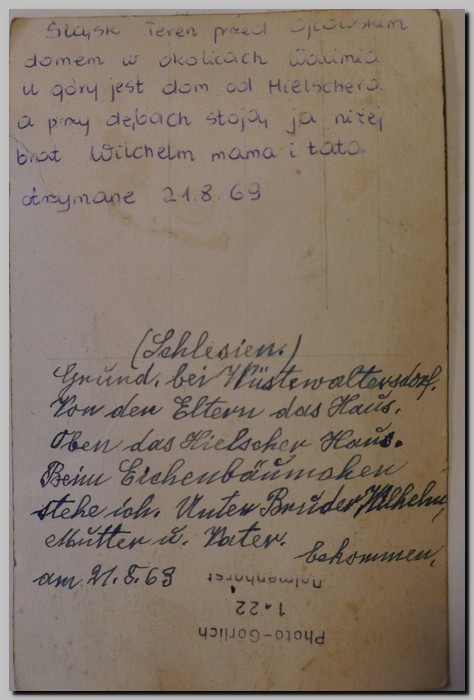 Śląsk Teren przed ojcowskim
domem w okolicach Walimia
u góry jest dom od Hielschera
a przy dębach stoją ja niżej
brat Wilchelm mama i tata
otrzymane 21.8.69
(Schlesien.)
Grund. bei Wüstewaltersdorf.
Von den Eltern das Haus.
Oben das Hielscher Haus.
Beim Eichenbäumchen
stehe ich. Unten Bruder Wilhelm,
Mutter u. Vater.
bekommen,
am 21.8.69
Photo-Görlich
1.22
Delmenhorst